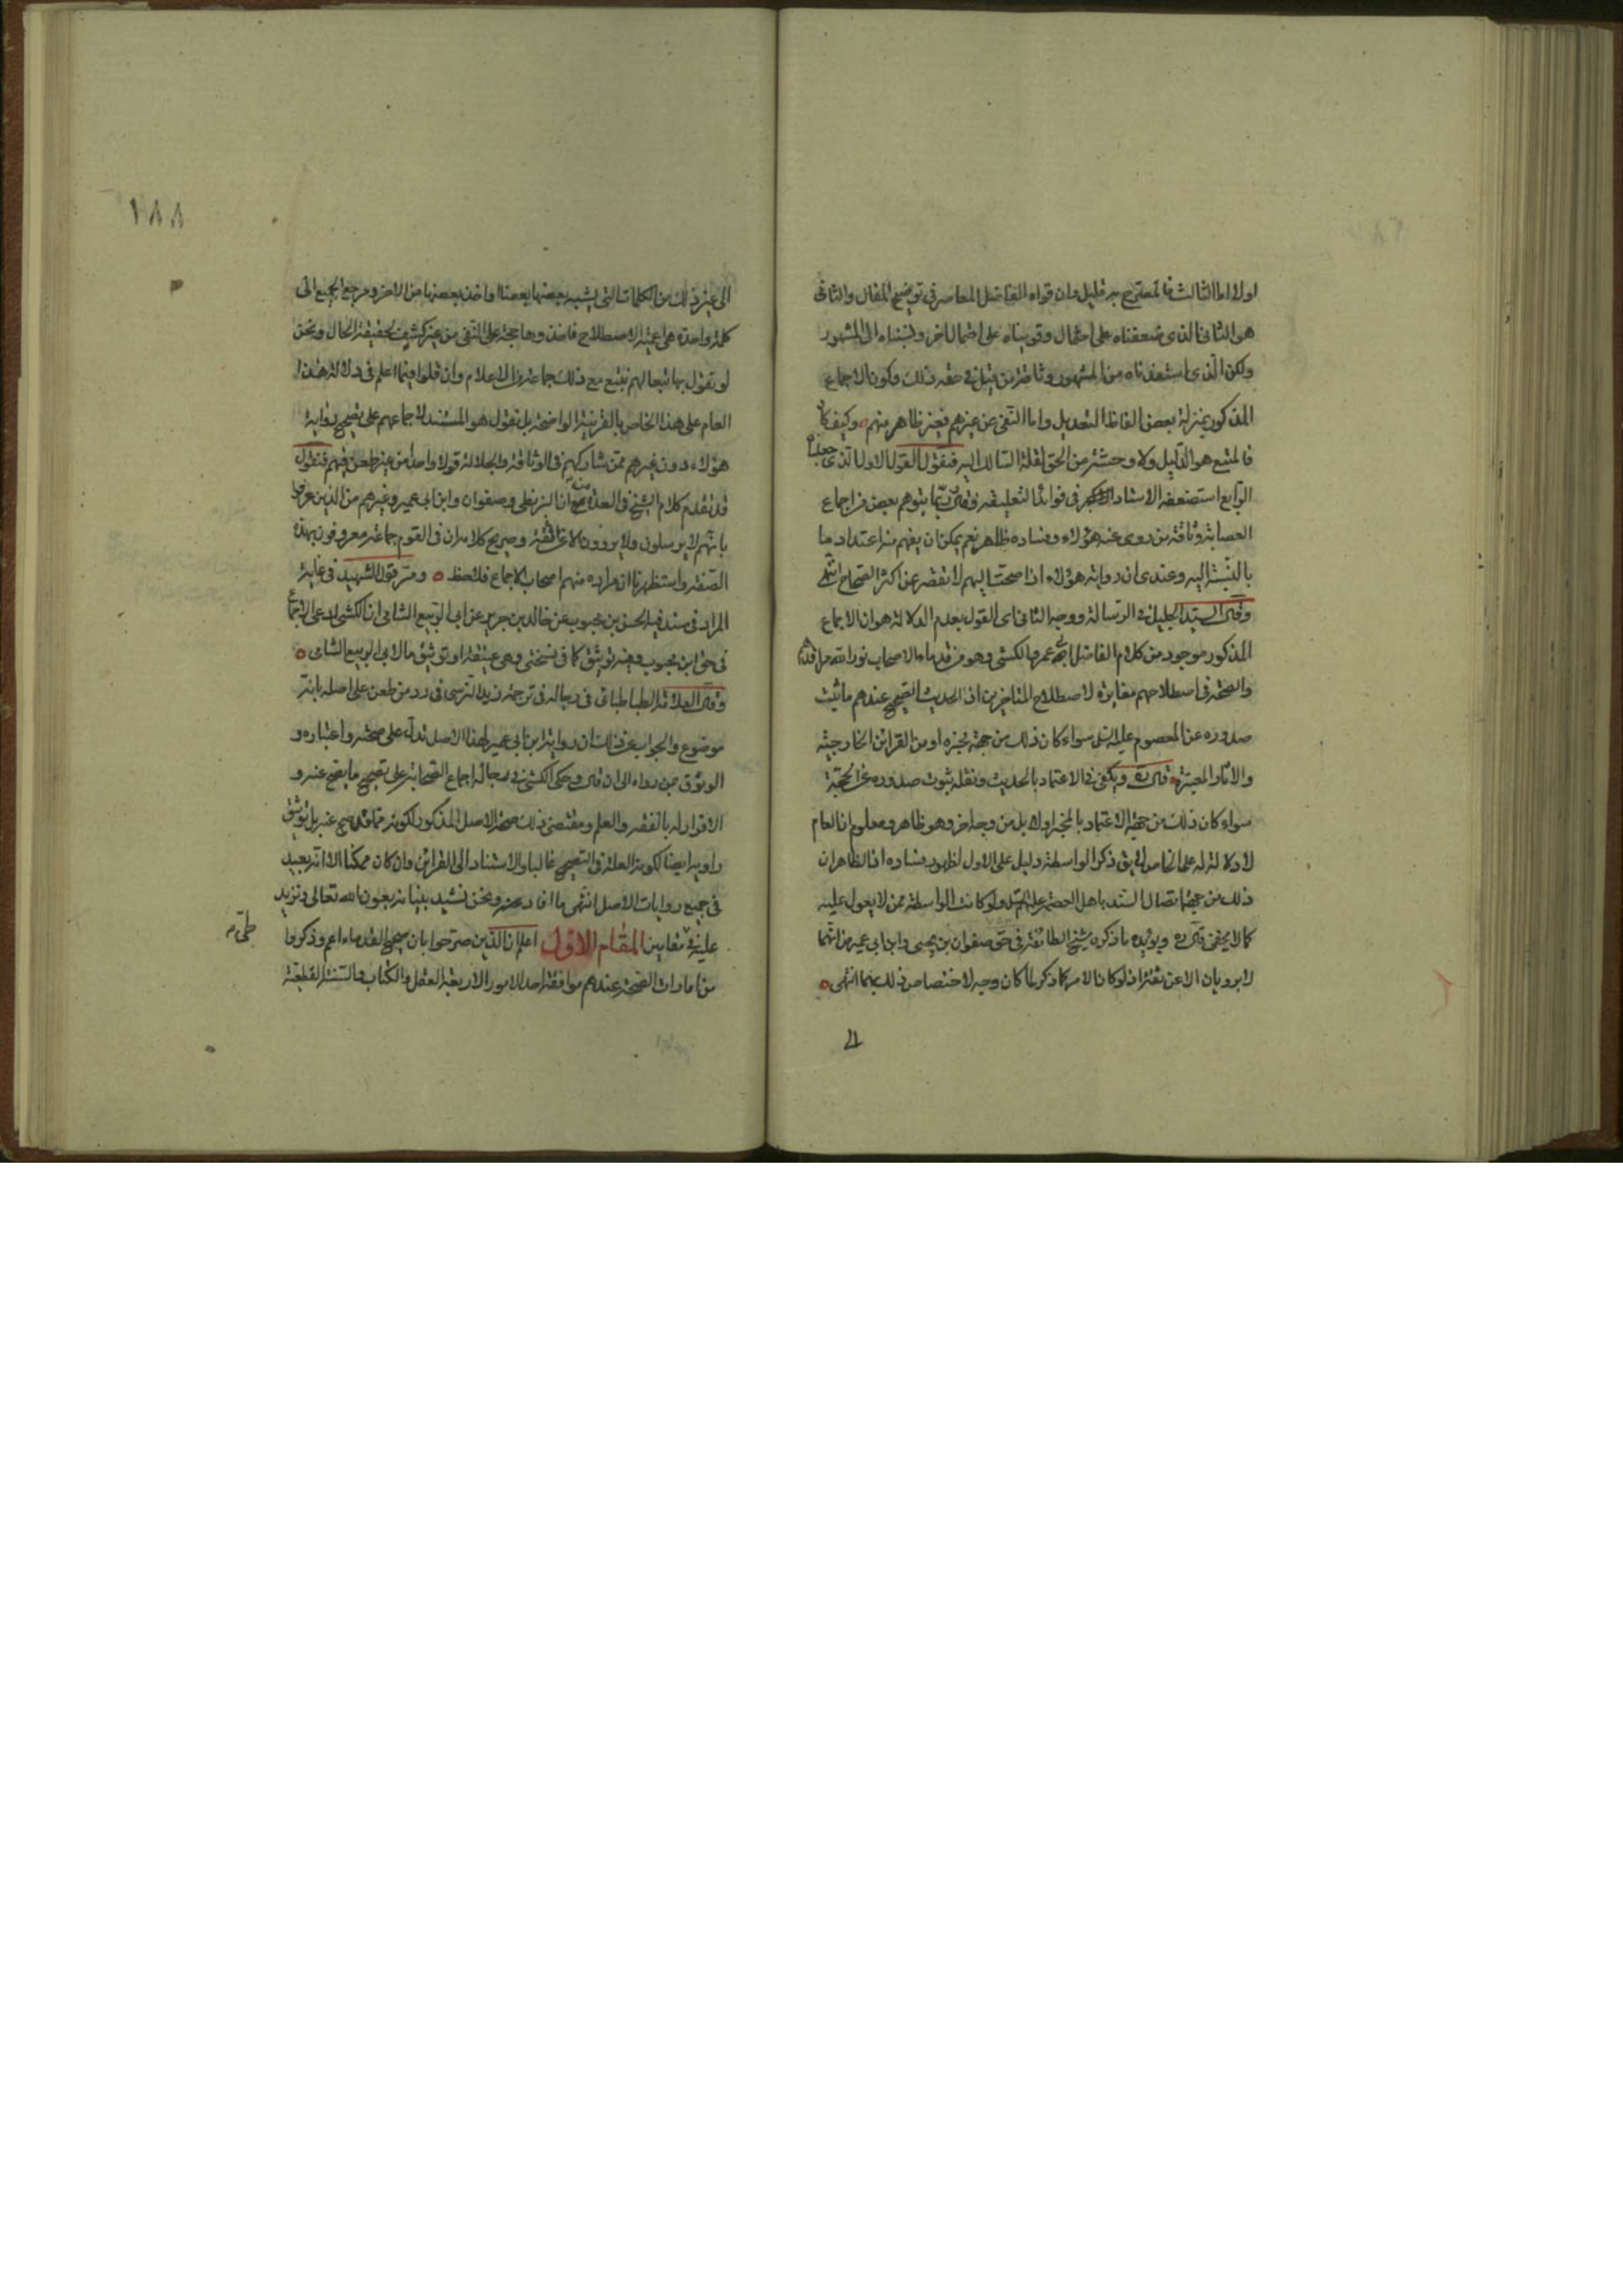 اولا اما الثالث فالمصرح به قليل وان قواه الفاضل المعاصر في توضيح المقال والثاني
هو الثاني الذي ضعفناه على احتمال وقويناه على احتمال اخر ونسبناه الى المشهور
ولكن الذي استفدناه من المشهور وثاقة من قيل في حقه ذلك وكون الاجماع
المذكور بمنزلة بعض الفاظ التعديل واما التقى عن غيرهم فغير ظاهر منهم وكيف كان
فالمتبع هو الدليل ولا وحشة من الحق لقلة السالك اليه فنقول القول الاول الذي جعلناه
الرابع استضعفه الاستاد الاكبر في فوائد التعليقة فقال ربما يتوهم بعض من اجماع
العصابة وثاقة من روى عنه هؤلاء وفساده ظاهر نعم يمكن ان يفهم منه اعتداد ما
بالنسبة اليه وعندي ان رواية هؤلاء اذا صحت اليهم لا تقصر عن اكثر الصحاح انتهى
وقال السيد الجليل في الرسالة ووجه الثاني اي القول بعدم الدلالة هو ان الاجماع
المذكور موجود من كلام الفاضل ابي عمرو الكشي وهو من قدماء الاصحاب نور الله مراقدهم
والصحة في اصطلاحهم مغايرة لاصطلاح المتاخرين اذ الحديث الصحيح عندهم ما ثبت
صدوره عن المعصوم عليه السلم سواء كان ذلك من جهة مخبره او من القرائن الخارجية
والاثار المعتبرة قال ره ويكفي في الاعتماد بالحديث ونقله ثبوت صدوره عن الحجة
سواء كان ذلك من جهة الاعتماد بالمخبر اولا بل من وجه اخر وهو ظاهر ومعلوم ان العام
لا دلالة له على الخاص لا يق ذكر الواسطة دليل على الاول لظهور فساده اذ الظاهر ان
ذلك من جهة اتصال السند باهل العصمة عليهم السلم ولو كانت الواسطة ممن لا يعول عليه
كما لا يخفى قال ره ويؤيده ما ذكره شيخ الطائفة في حق صفوان بن يحيى وابن ابي عمير من انهما
لا يرويان الا عن ثقة اذ لو كان الامر كما ذكر لما كان وجه لاختصاص ذلك بهما انتهى
الى
١٨٨
الى غير ذلك من الكلمات التي يشبه بعضها بعضا واخذ بعضها من الاخر ومرجع الجميع الى
كلمة واحدة هي اعمية الاصطلاح فاخذوها حجة على النفي من غير كشف لحقيقة الحال ونحن
لو نقول بها تبعا لهم نتبع مع ذلك جماعة من الاعلام وان قلوا فيما اعلم في دلالة هذا
العام على هذا الخاص بالقرينة الواضحة بل نقول هو المستند لاجماعهم على تصحيح رواية
هؤلاء دون غيرهم ممن شاركهم في الوثاقة والجلالة قولا واحدا من غير طعن فيهم فنقول
قد تقدم كلام الشيخ في العدة من ان البزنطي وصفوان وابن ابي عمير وغيرهم من الذين عرفوا
بانهم لا يرسلون ولا يروون الا عن ثقة وصريح كلامه ان في القوم جماعة معروفون بهذه
الصفة واستظهرنا ان مراده منهم اصحاب الاجماع فلاحظ ومر قول الشهيد في غاية
المراد في سند فيه الحسن بن محبوب عن خالد بن جرير عن ابي الربيع الشامي ان الكشي ادعى الاجماع
في حق ابن محبوب وفيه توثيق كما في نسختي وهي عتيقة او توثيق ما لابي الربيع الشامي
وقال العلامة الطباطبائي في رجاله في ترجمة زيد النرسي في رد من طعن على اصله بانه
موضوع والجواب عن ذلك ان رواية ابن ابي عمير لهذا الاصل تدل على صحته واعتباره و
الوثوق بمن رواه الى ان قال وحكى الكشي في رجاله اجماع الصحابة على تصحيح ما يصح عنه و
الاقرار له بالفقه والعلم ومقتضى ذلك صحة الاصل المذكور لكونه مما قد صح عنه بل توثيق
راويه ايضا لكونه العلة في التصحيح غالبا والاستناد الى القرائن وان كان ممكنا الا انه بعيد
في جميع روايات الاصل انتهى ما افاد ونحن نشيد بنيانه بعون الله تعالى ونزيد
عليه في مقامين المقام الاول اعلم ان الذين صرحوا بان صحيح القدماء اعم وذكروا
من امارات الصحة عندهم موافقة احد الامور الاربعة العقل والكتاب والسنة القطعية